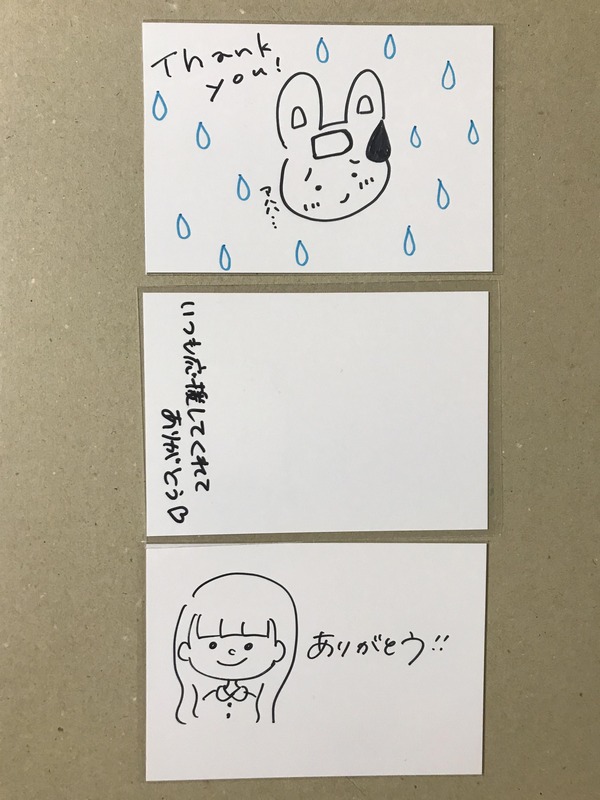 Thank
you!
アハハ…
いつも応援してくれて
ありがとう♡
ありがとう!!